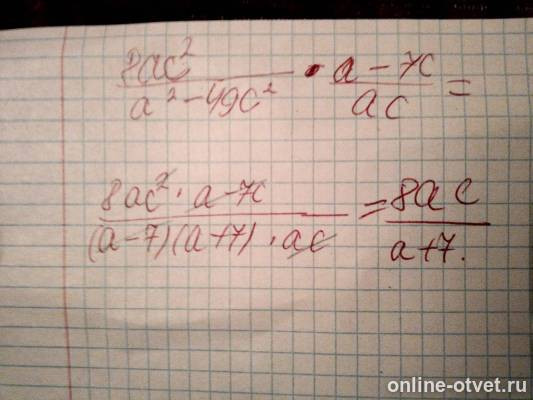 8ac²/(a²-49c²) · (a-7c)/(ac) =
(8ac² · a-7c)/((a-7)(a+7) · ac) = (8ac)/(a+7.)
online-otvet.ru